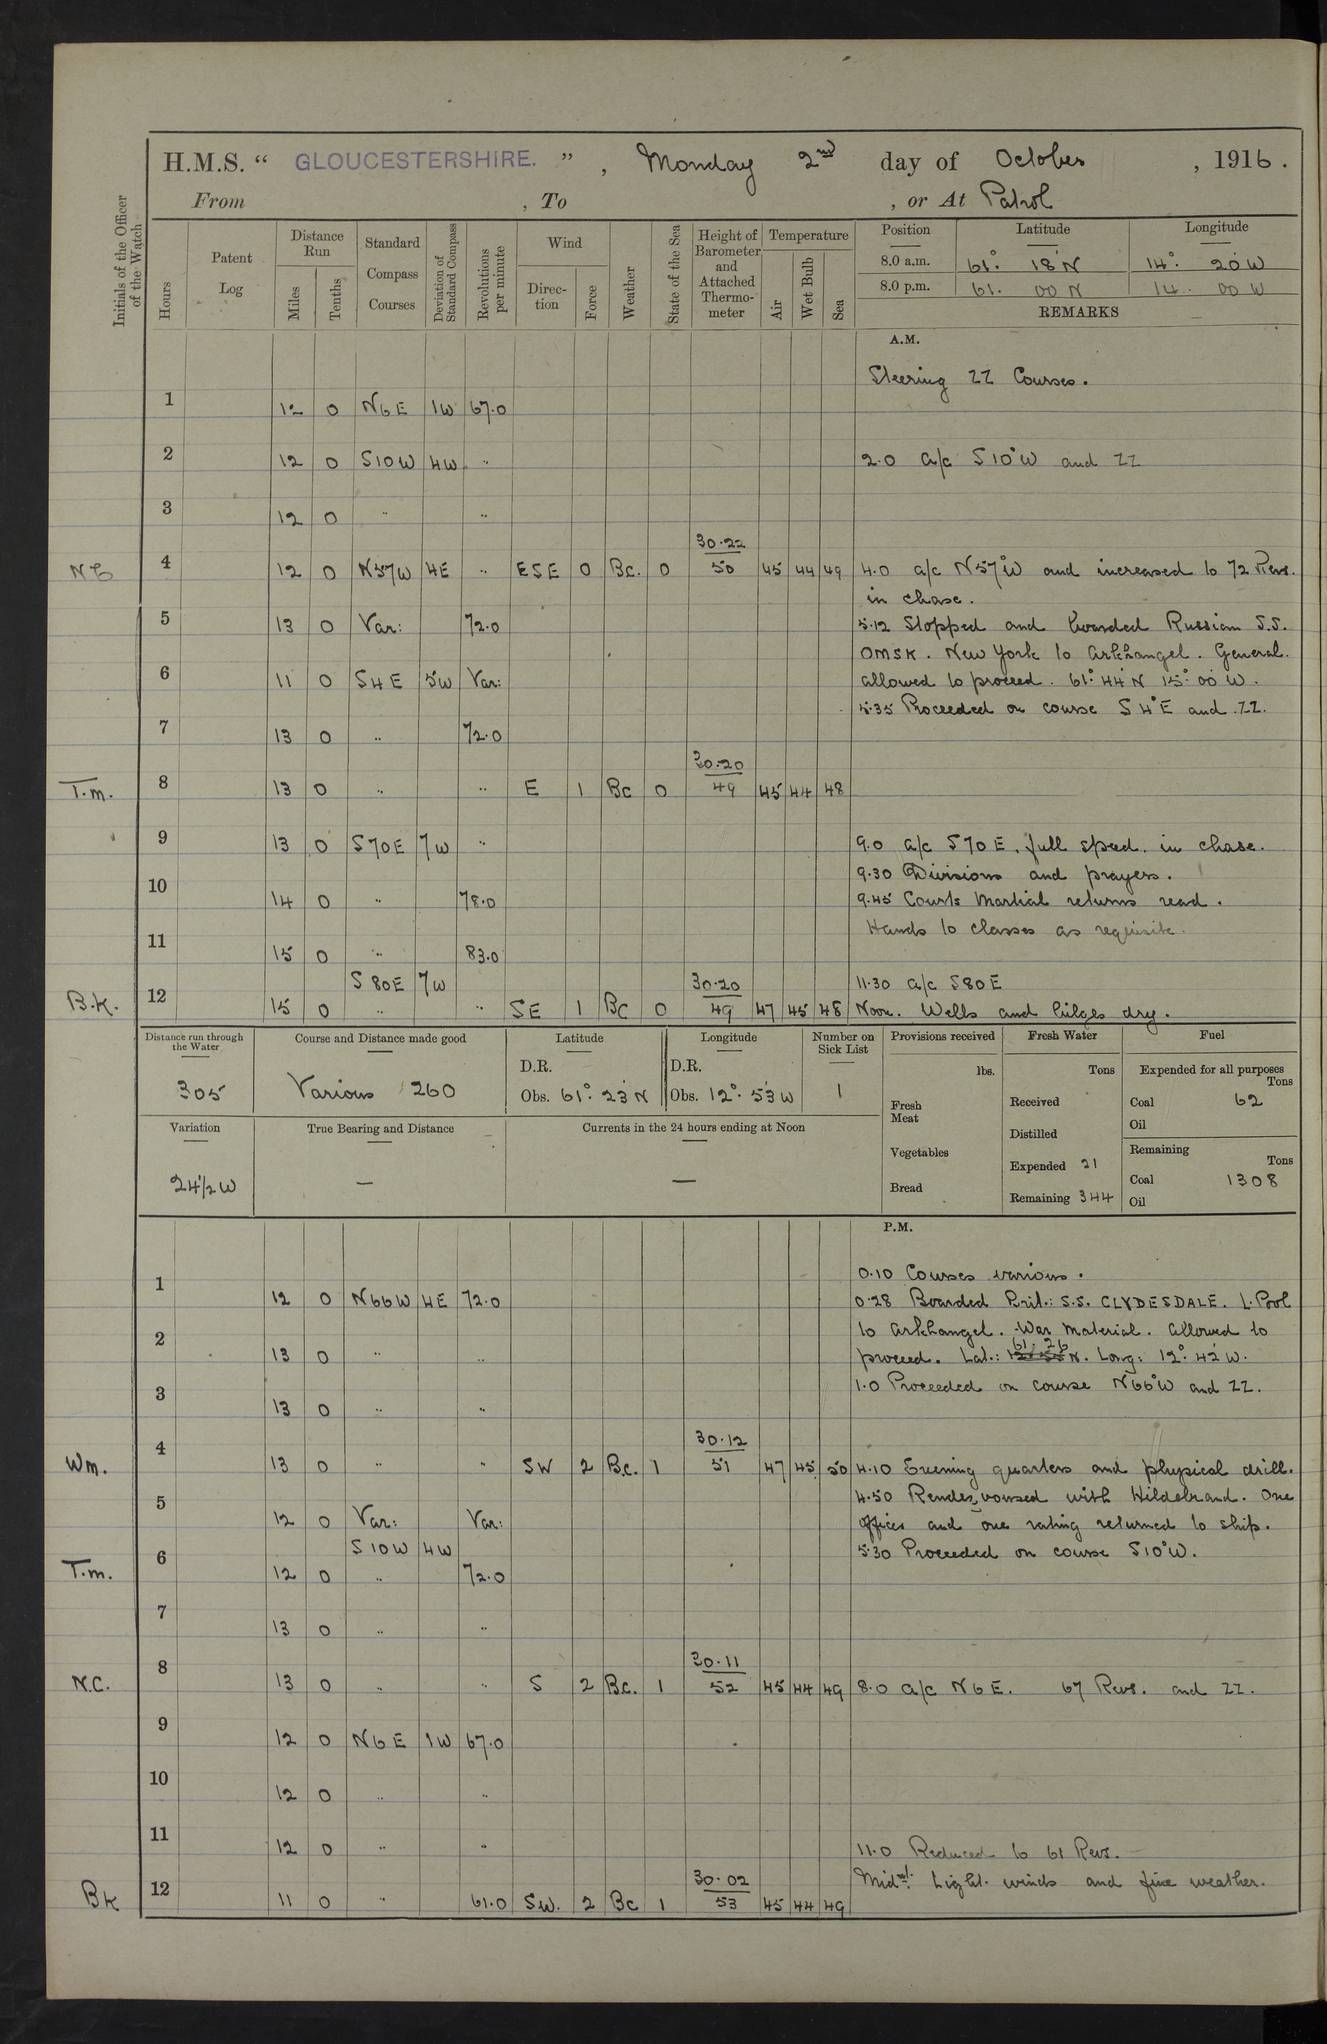 H.M.S. " GLOUCESTERSHIRE. " , Monday 2nd day of October , 1916 .
From , To , or At Patrol
Initials of the Officer of the Watch
Hours
Patent Log
Distance Run
Miles
Tenths
Standard Compass Courses
Deviation of Standard Compass
Revolutions per minute
Wind
Direc-tion
Force
Weather
State of the Sea
Height of Barometer and Attached Thermo-meter
Temperature
Air
Wet Bulb
Sea
Position Latitude Longitude
8.0 a.m. 61° 18'N 14° 20'W
8.0 p.m. 61. 00 N 14. 00 W
REMARKS
A.M.
Steering ZZ Courses.
1 12 0 N6E 1W 67.0
2 12 0 S10W 4W " 2.0 a/c S10°W and ZZ
3 12 0 " "
30.22
N C 4 12 0 N57W 4E " ESE 0 Bc. 0 50 45 44 49 4.0 a/c N57°W and increased to 72 Revs.
in chase.
5 13 0 Var: 72.0 5.12 Stopped and boarded Russian S.S.
OMSK. New York to Arkhangel. General.
6 11 0 S4E 5W Var: allowed to proceed. 61° 44'N 15° 00'W.
5.35 Proceeded on course S4°E and ZZ.
7 13 0 " 72.0
30.20
T.m. 8 13 0 " " E 1 Bc 0 49 45 44 48
9 13 0 S70E 7W " 9.0 a/c S70E. full speed. in chase.
9.30 Divisions and prayers.
10 14 0 " 78.0 9.45 Courts Martial returns read.
Hands to classes as requisite.
11 15 0 " 83.0
S80E 7W 30.20 11.30 a/c S80E
B.K. 12 15 0 " " SE 1 Bc 0 49 47 45 48 Noon. Wells and bilges dry.
Distance run through the Water
305
Course and Distance made good
Various 260
Latitude
D.R.
Obs. 61° 23'N
Longitude
D.R.
Obs. 12° 53'W
Number on Sick List
1
Provisions received
lbs.
Fresh Meat
Vegetables
Bread
Fresh Water
Tons
Received
Distilled
Expended 21
Remaining 344
Fuel
Expended for all purposes
Tons
Coal 62
Oil
Remaining
Tons
Coal 1308
Oil
Variation
24 1/2 W
True Bearing and Distance
—
Currents in the 24 hours ending at Noon
—
P.M.
0.10 Courses various.
1 12 0 N66W 4E 72.0 0.28 Boarded Brit.: S.S. CLYDESDALE. L.Pool
2 to Arkhangel. War Material. Allowed to
13 0 " " proceed. Lat.: 61. 26 N. Long: 12° 42'W.
1.0 Proceeded on course N66°W and ZZ.
3 13 0 " "
30.12
Wm. 4 13 0 " " SW 2 Bc. 1 51 47 45 50 4.10 Evening quarters and physical drill.
4.50 Rendezvoused with Hildebrand. One
5 12 0 Var: Var: officer and one rating returned to ship.
S10W 4W 5.30 Proceeded on course S10°W.
T.m. 6 12 0 " 72.0
7 13 0 " "
30.11
N.C. 8 13 0 " " S 2 Bc. 1 52 45 44 49 8.0 a/c N6E. 67 Revs. and ZZ.
9 12 0 N6E 1W 67.0
10 12 0 " "
11 12 0 " " 11.0 Reduced to 61 Revs.
30.02 Midnt. Light winds and fine weather.
BK 12 11 0 " 61.0 SW. 2 Bc 1 53 45 44 49